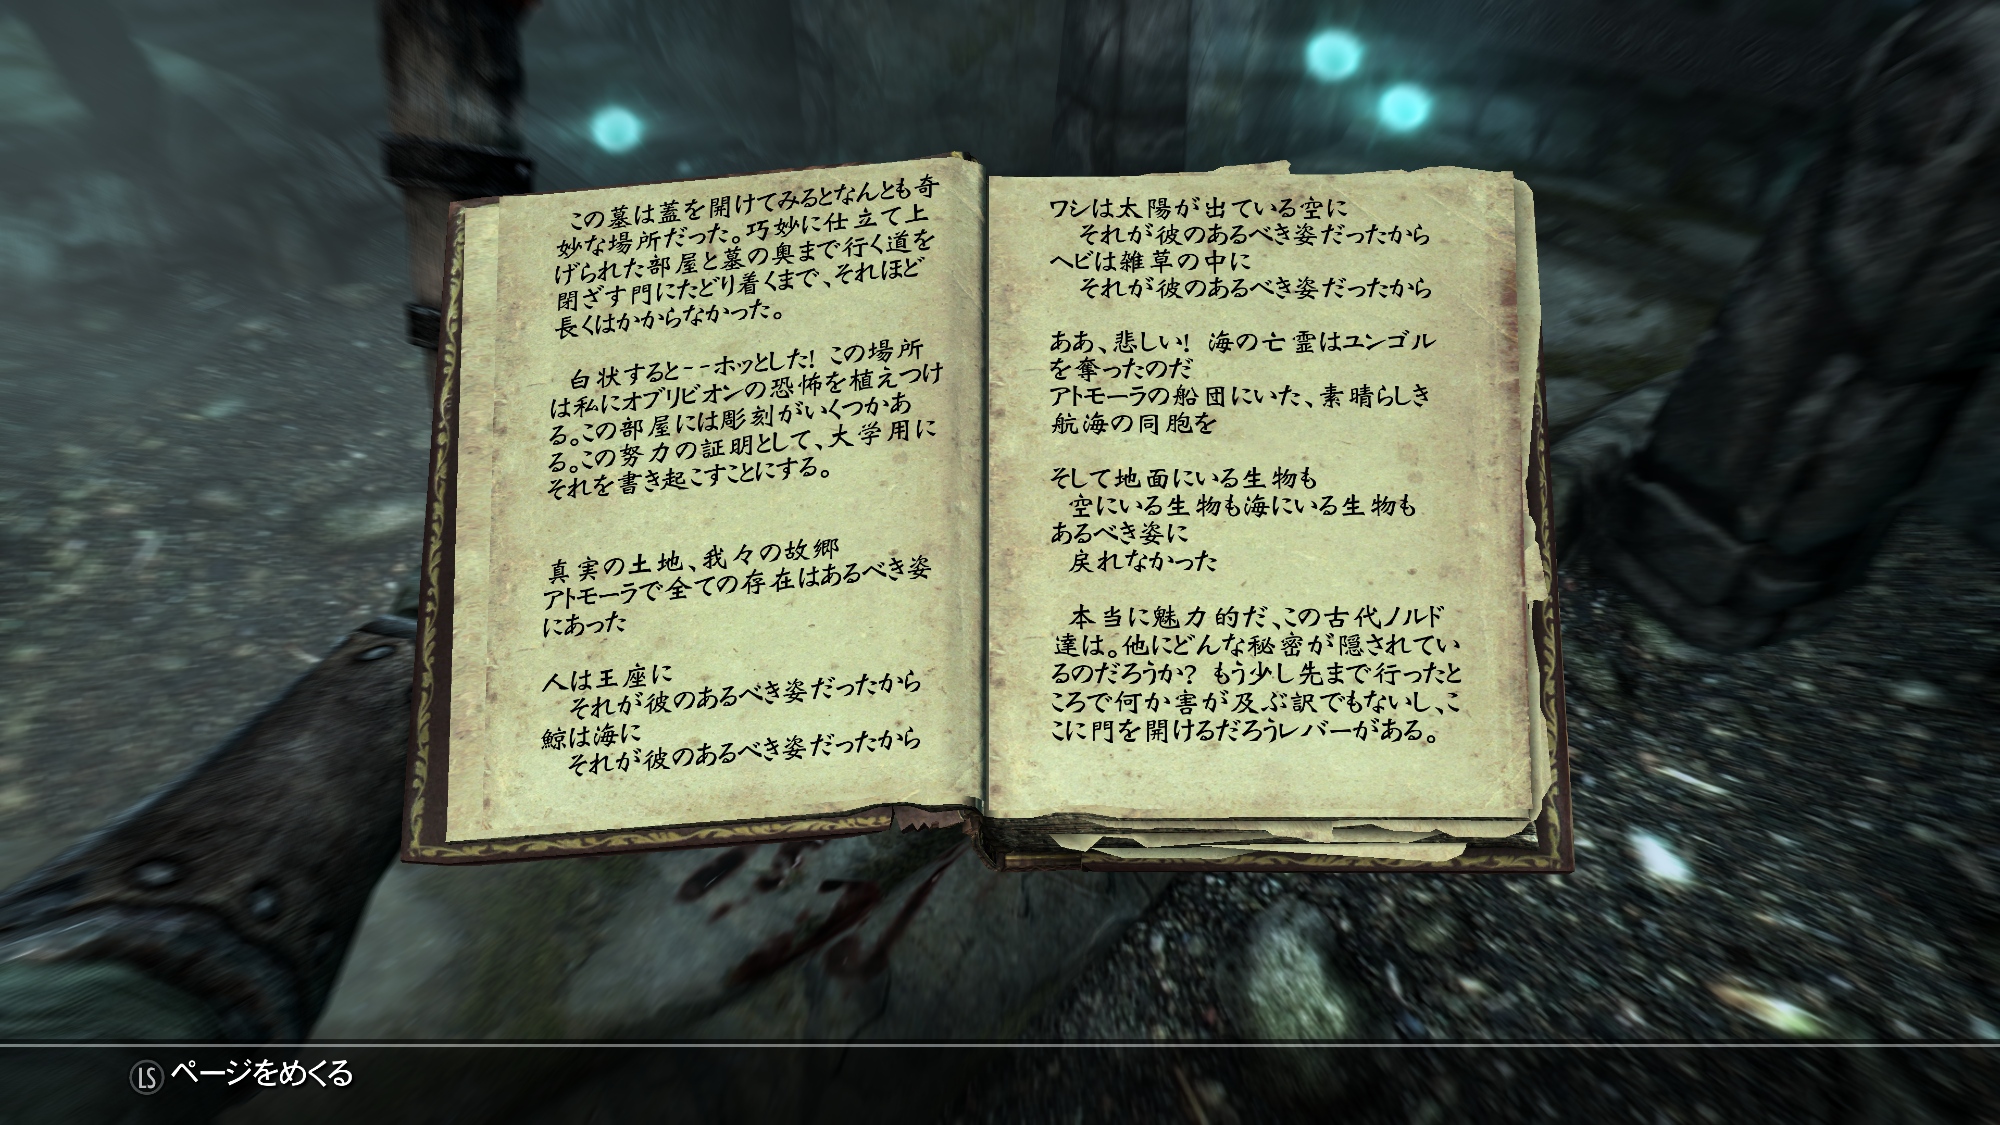 この墓は蓋を開けてみるとなんとも奇
妙な場所だった。巧妙に仕立て上
げられた部屋と墓の奥まで行く道を
閉ざす門にたどり着くまで、それほど
長くはかからなかった。
白状すると--ホッとした! この場所
は私にオブリビオンの恐怖を植えつけ
る。この部屋には彫刻がいくつかあ
る。この努力の証明として、大学用に
それを書き起こすことにする。
真実の土地、我々の故郷
アトモーラで全ての存在はあるべき姿
にあった
人は王座に
それが彼のあるべき姿だったから
鯨は海に
それが彼のあるべき姿だったから
ワシは太陽が出ている空に
それが彼のあるべき姿だったから
ヘビは雑草の中に
それが彼のあるべき姿だったから
ああ、悲しい! 海の亡霊はユンゴル
を奪ったのだ
アトモーラの船団にいた、素晴らしき
航海の同胞を
そして地面にいる生物も
空にいる生物も海にいる生物も
あるべき姿に
戻れなかった
本当に魅力的だ、この古代ノルド
達は。他にどんな秘密が隠されてい
るのだろうか? もう少し先まで行ったと
ころで何か害が及ぶ訳でもないし、こ
こに門を開けるだろうレバーがある。
LS ページをめくる